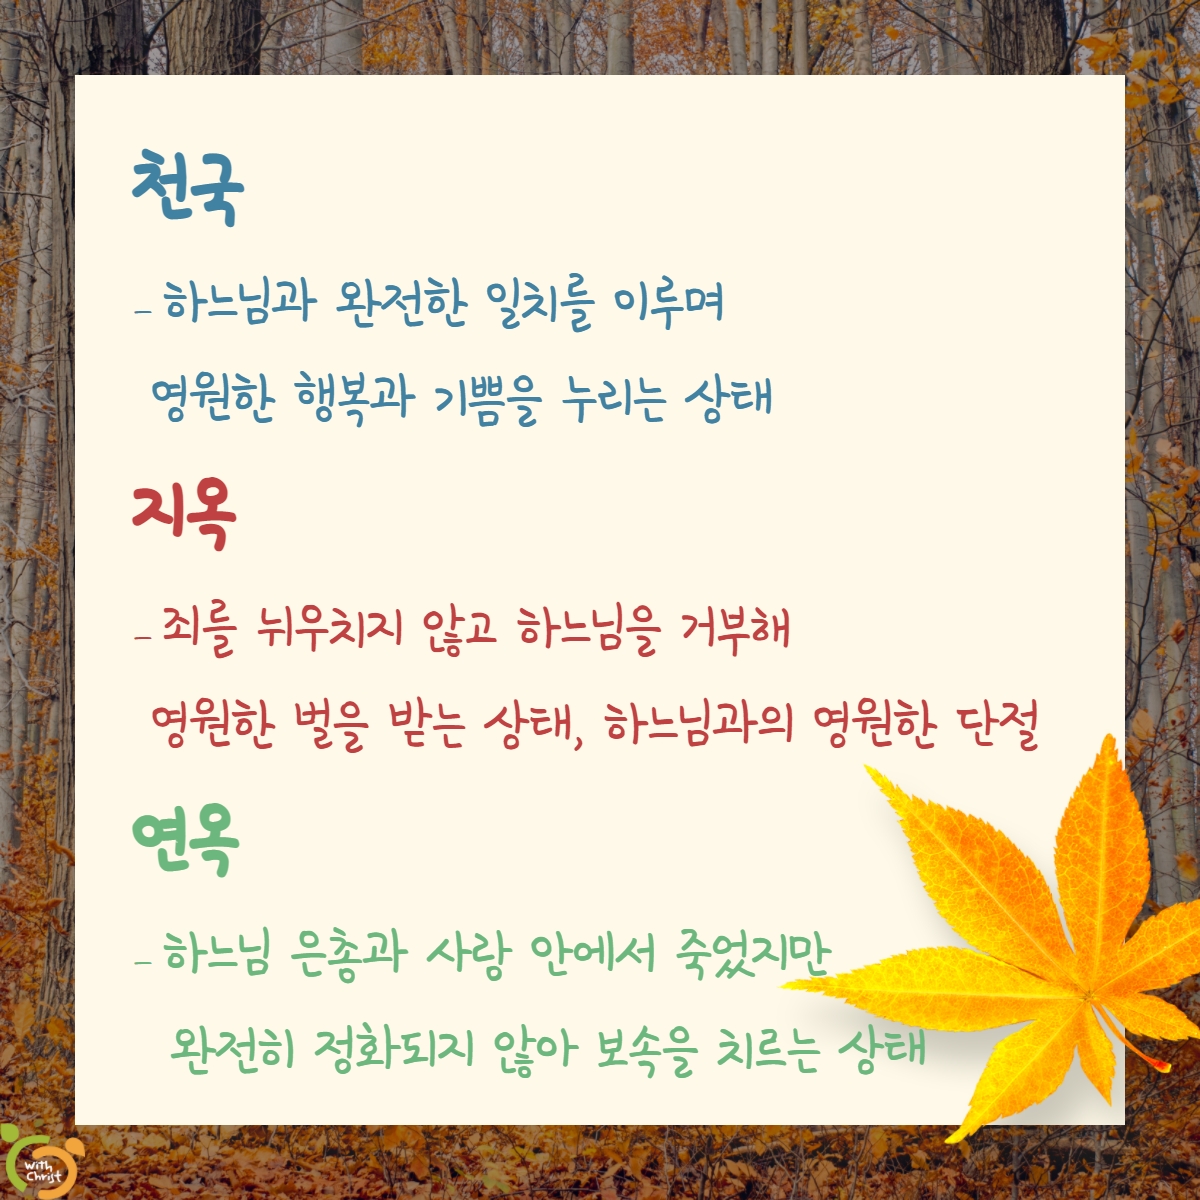 천국
- 하느님과 완전한 일치를 이루며
영원한 행복과 기쁨을 누리는 상태
지옥
- 죄를 뉘우치지 않고 하느님을 거부해
영원한 벌을 받는 상태, 하느님과의 영원한 단절
연옥
- 하느님 은총과 사랑 안에서 죽었지만
완전히 정화되지 않아 보속을 치르는 상태
With
Christ